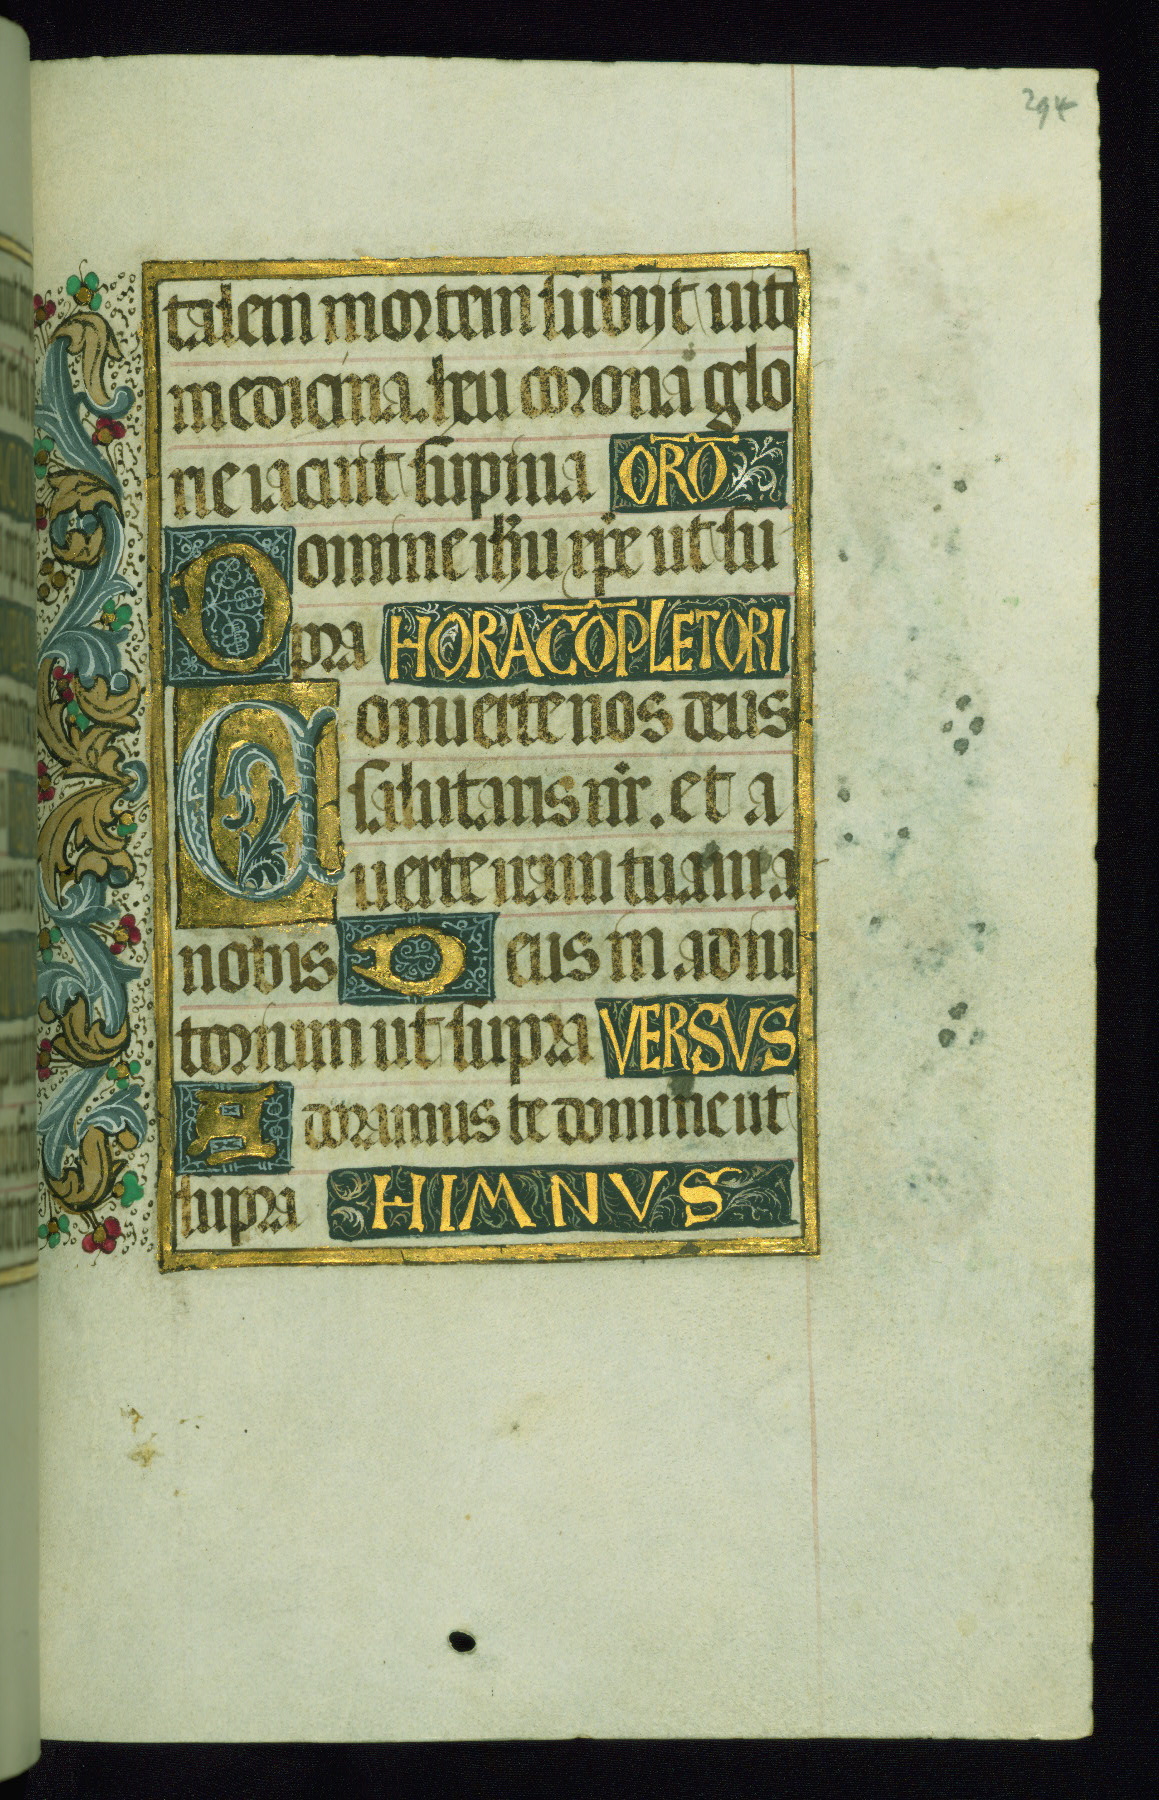 294
talem mortem subijt uite
medicina. heu corona glo
rie iacuit supina ORŌ
Domine ihū xp̄e ut su
pra HORA CŌPLETORI
Conuerte nos deus
salutaris nr̄. et a
uerte iram tuam a
nobis Deus in adiu
torium ut supra VERSVS
Adoramus te domine ut
supra HIMNVS